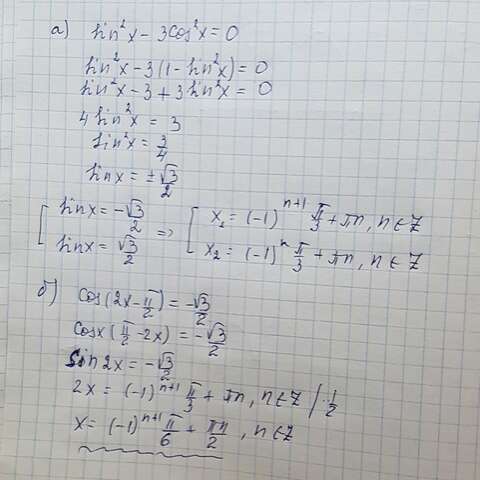 а) sin²x - 3cos²x = 0
sin²x - 3(1 - sin²x) = 0
sin²x - 3 + 3sin²x = 0
4sin²x = 3
sin²x = 3/4
sinx = ±√3/2
[ sinx = -√3/2 => [ x₁ = (-1)ⁿ⁺¹ π/3 + πn, n ∈ Z
sinx = √3/2 x₂ = (-1)ⁿ π/3 + πn, n ∈ Z
б) cos(2x - π/2) = -√3/2
cosx(π/2 - 2x) = -√3/2
sin2x = -√3/2
2x = (-1)ⁿ⁺¹ π/3 + πn, n ∈ Z /·1/2
x = (-1)ⁿ⁺¹ π/6 + πn/2, n ∈ Z